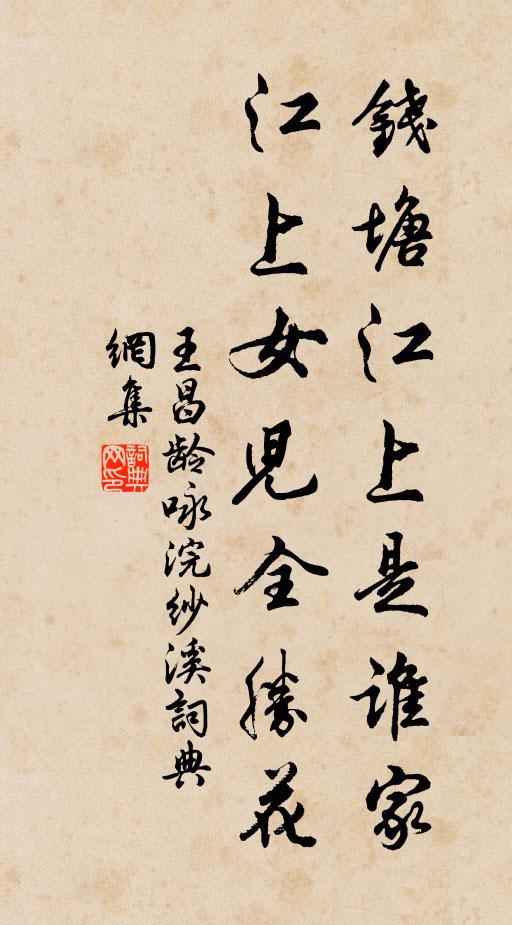 錢塘江上是誰家
江上女兒全勝花
王昌齡咏浣紗溪詞典
網集
詞典
网印